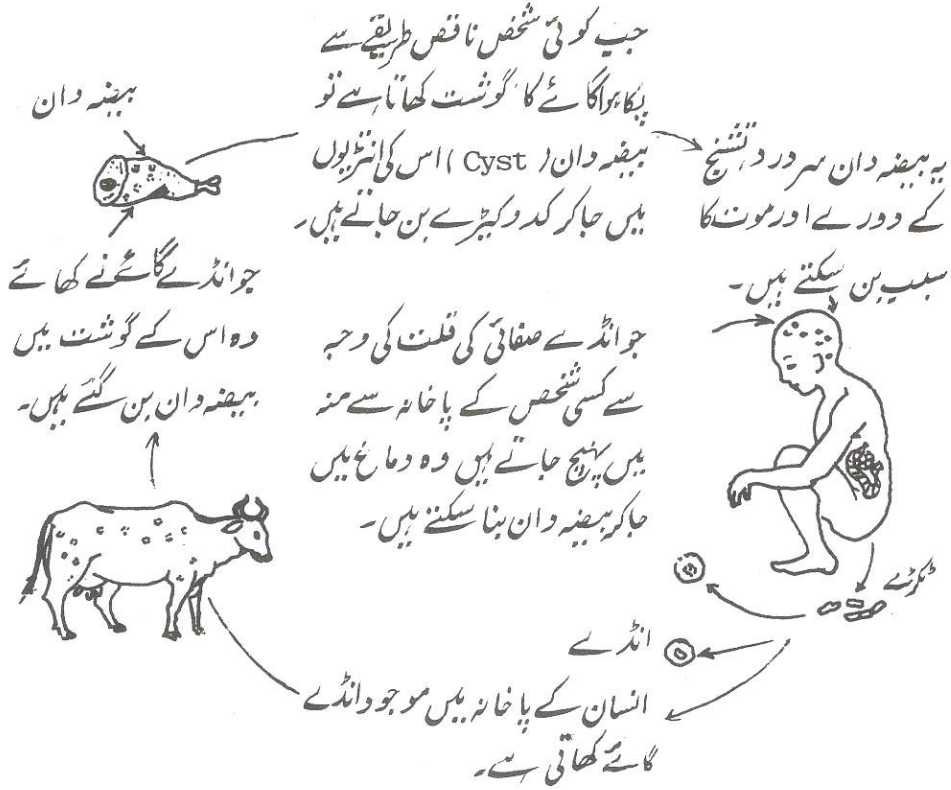 جب کوئی شخص ناقص طریقے سے
پکا ہوا گائے کا گوشت کھاتا ہے تو
بیضہ دان ( Cyst ) اس کی انتڑیوں
میں جا کر کدو کیڑے بن جاتے ہیں۔
یہ بیضہ دان سر درد، تشنج
کے دورے اور موت کا
سبب بن سکتے ہیں۔
بیضہ دان
جو انڈے گائے نے کھائے
وہ اس کے گوشت میں
بیضہ دان بن گئے ہیں۔
جو انڈے صفائی کی قلت کی وجہ
سے کسی شخص کے پاخانہ سے منہ
میں پہنچ جاتے ہیں وہ دماغ میں
جا کر بیضہ دان بنا سکتے ہیں۔
ٹکڑے
انڈے
انسان کے پاخانہ میں موجود انڈے
گائے کھاتی ہے۔